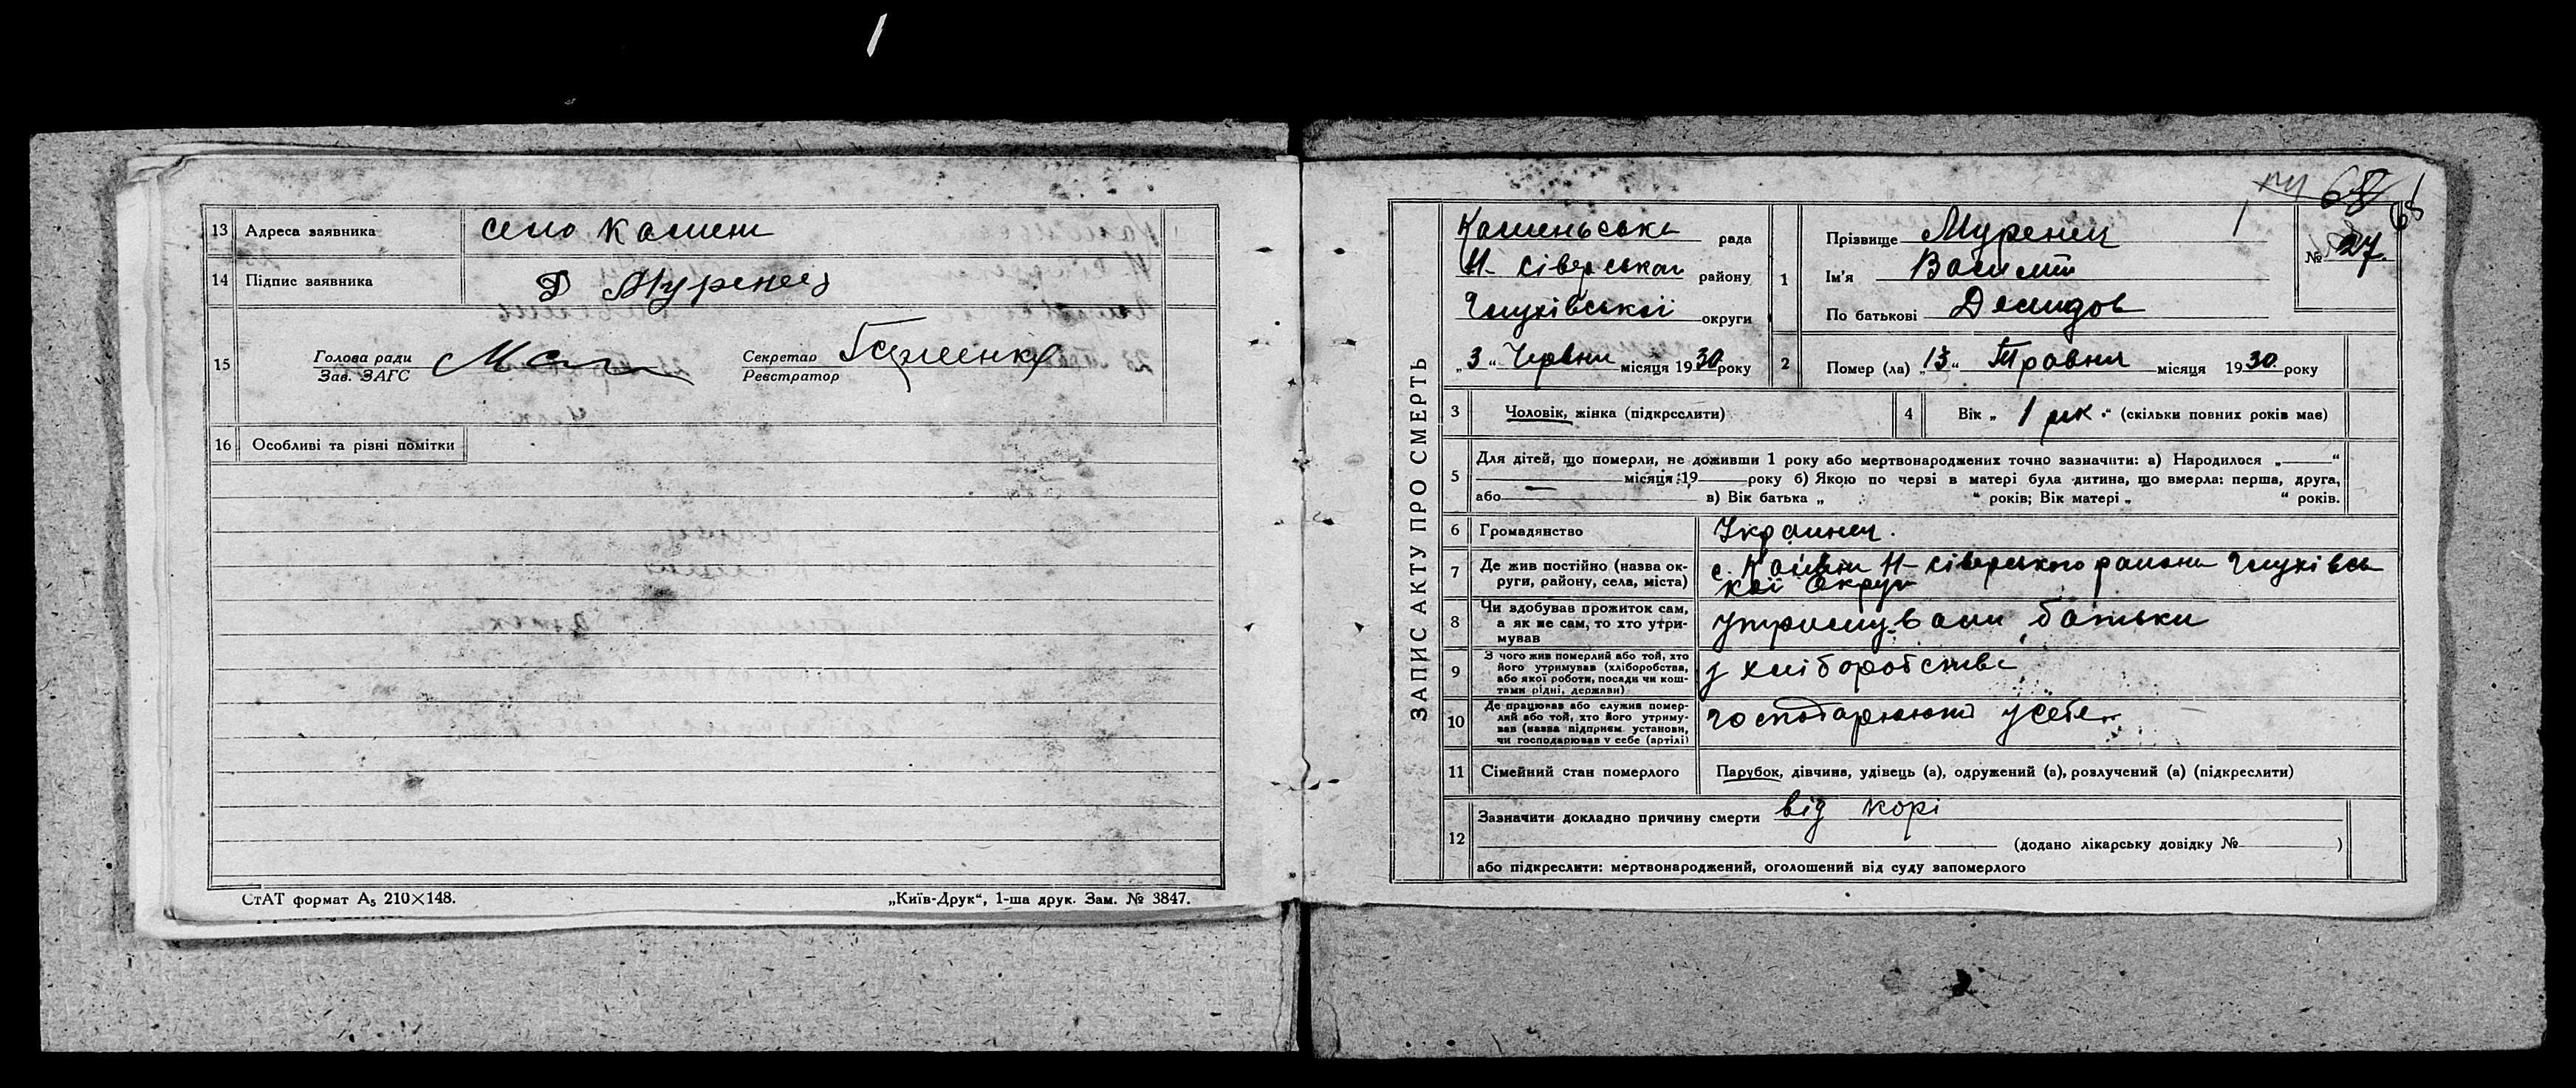 13 Адреса заявника село Камень
14 Підпис заявника Д Муренец
15 Голова ради
Зав. ЗАГС
Секретар
Реєстратор
16 Особливі та різні помітки
СтАТ формат А5 210×148.
„Київ-Друк“, 1-ша друк. Зам. № 3847.
ЗАПИС АКТУ ПРО СМЕРТЬ
68
68
№ 27.
Каменьська рада
Н- сіверськои району
Глухівської округи
„3“ Червня місяця 1930 року
1 Прізвище Муренец
Ім'я Василій
По батькові Демидов
2 Помер (ла) „13“ Травня місяця 1930 року
3 Чоловік, жінка (підкреслити)
4 Вік „1 рік.“ (скільки повних років має)
5 Для дітей, що померли, не доживши 1 року або мертвонароджених точно зазначити: а) Народилося „—“
місяця 19 року б) Якою по черзі в матері була дитина, що вмерла: перша, друга,
або в) Вік батька „ “ років; Вік матері „ “ років.
6 Громадянство Украинец.
7 Де жив постійно (назва округи, району, села, міста) с. Камень Н- сіверського района Глухівсь
кої Округи
8 Чи здобував прожиток сам, а як не сам, то хто утримував утримували батьки
9 З чого жив померлий або той, хто його утримував (хліборобства, або якої роботи, посади чи коштами рідні, держави) з хліборобства
10 Де працював або служив померлий або той, хто його утримував (назва підприєм. установи, чи господарював у себе (артілі) господарюють усебе.
11 Сімейний стан померлого Парубок, дівчина, удівець (а), одружений (а), розлучений (а) (підкреслити)
12 Зазначити докладно причину смерти від корі
(додано лікарську довідку № )
або підкреслити: мертвонароджений, оголошений від суду запомерлого